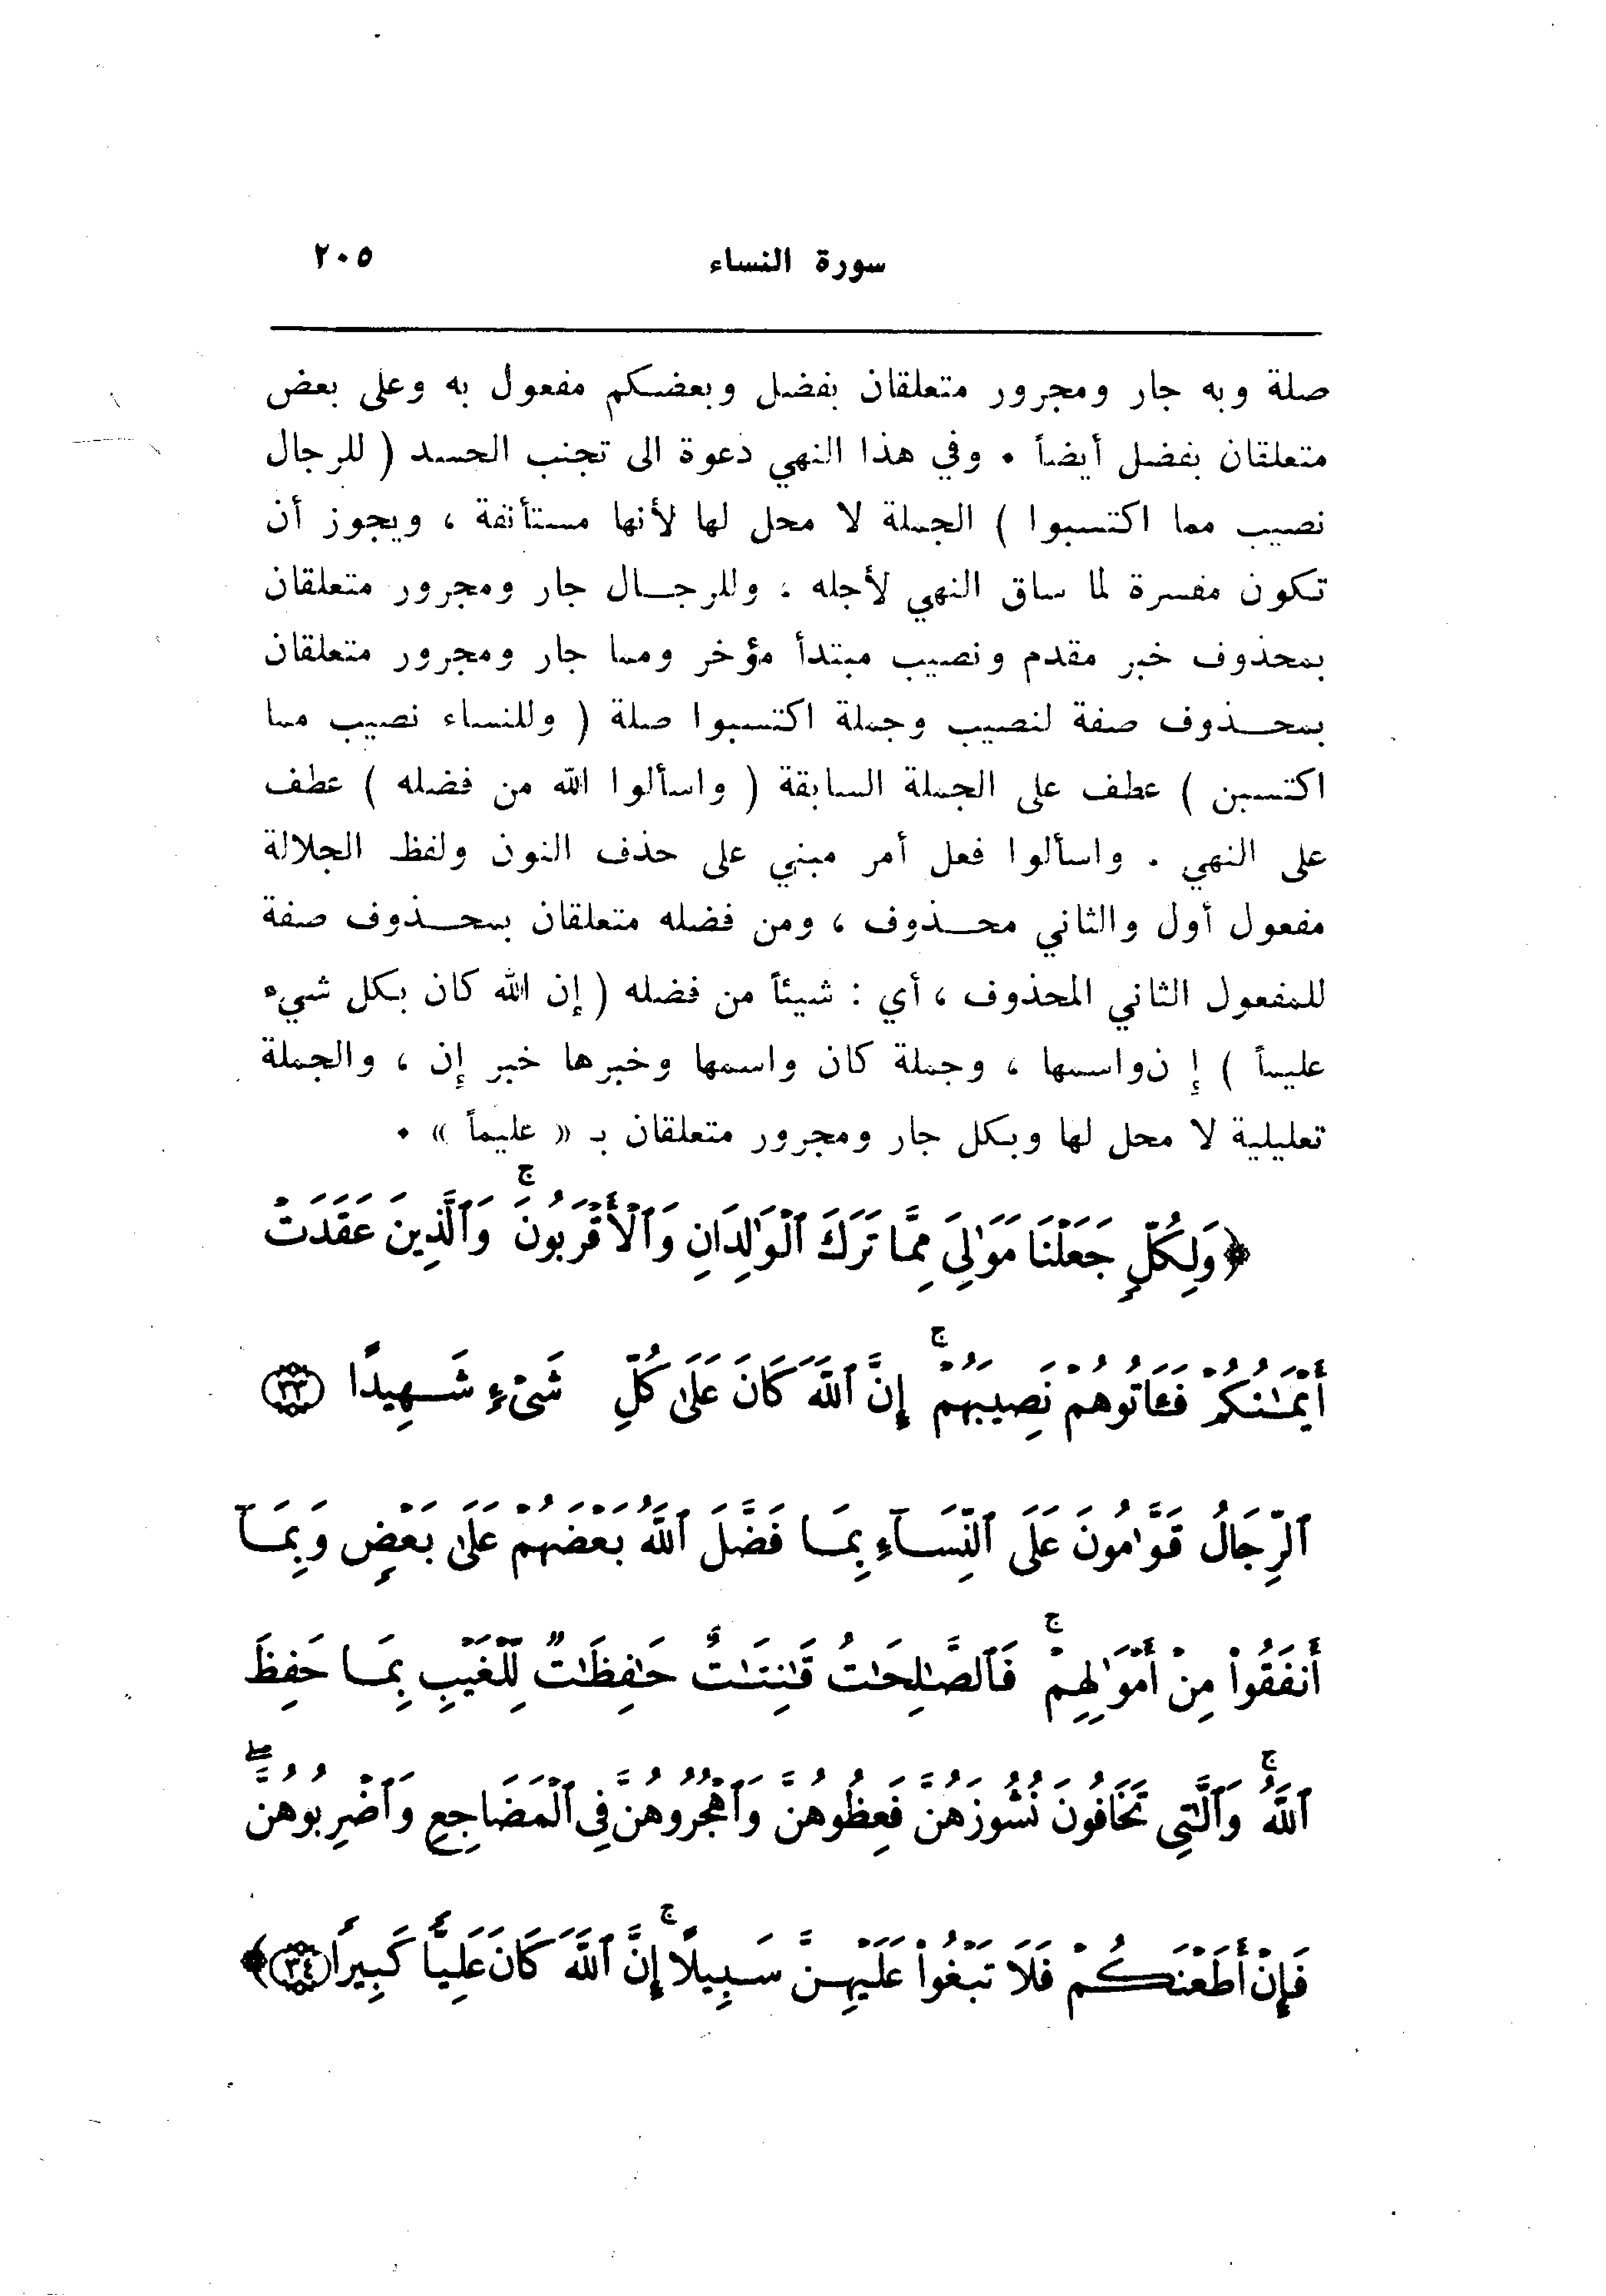 سورة النساء ٢٠٥
صلة وبه جار ومجرور متعلقان بفضل وبعضكم مفعول به وعلى بعض
متعلقان بفضل أيضاً ٠ وفي هذا النهي دعوة الى تجنب الحسد ( للرجال
نصيب مما اكتسبوا ) الجملة لا محل لها لأنها مستأنفة ، ويجوز أن
تكون مفسرة لما ساق النهي لأجله ، وللرجـــال جار ومجرور متعلقان
بمحذوف خبر مقدم ونصيب مبتدأ مؤخر ومما جار ومجرور متعلقان
بمحـــذوف صفة لنصيب وجملة اكتسبوا صلة ( وللنساء نصيب مما
اكتسبن ) عطف على الجملة السابقة ( واسألوا الله من فضله ) عطف
على النهي ٠ واسألوا فعل أمر مبني على حذف النون ولفظ الجلالة
مفعول أول والثاني محـــذوف ، ومن فضله متعلقان بمحـــذوف صفة
للمفعول الثاني المحذوف ، أي : شيئاً من فضله ( إن الله كان بكل شيء
عليماً ) إ نواسمها ، وجملة كان واسمها وخبرها خبر إن ، والجملة
تعليلية لا محل لها وبكل جار ومجرور متعلقان بـ « عليماً » ٠
﴿وَلِكُلٍّ جَعَلْنَا مَوَٰلِيَ مِمَّا تَرَكَ ٱلْوَٰلِدَانِ وَٱلْأَقْرَبُونَۚ وَٱلَّذِينَ عَقَدَتْ
أَيْمَٰنُكُمْ فَـَٔاتُوهُمْ نَصِيبَهُمْۚ إِنَّ ٱللَّهَ كَانَ عَلَىٰ كُلِّ شَىْءٍ شَهِيدًا ٣٣
ٱلرِّجَالُ قَوَّٰمُونَ عَلَى ٱلنِّسَآءِ بِمَا فَضَّلَ ٱللَّهُ بَعْضَهُمْ عَلَىٰ بَعْضٍ وَبِمَآ
أَنفَقُوا۟ مِنْ أَمْوَٰلِهِمْۚ فَٱلصَّٰلِحَٰتُ قَٰنِتَٰتٌ حَٰفِظَٰتٌ لِّلْغَيْبِ بِمَا حَفِظَ
ٱللَّهُۚ وَٱلَّٰتِى تَخَافُونَ نُشُوزَهُنَّ فَعِظُوهُنَّ وَٱهْجُرُوهُنَّ فِى ٱلْمَضَاجِعِ وَٱضْرِبُوهُنَّۖ
فَإِنْ أَطَعْنَكُمْ فَلَا تَبْغُوا۟ عَلَيْهِنَّ سَبِيلًاۚ إِنَّ ٱللَّهَ كَانَ عَلِيًّا كَبِيرًا ٣٤﴾